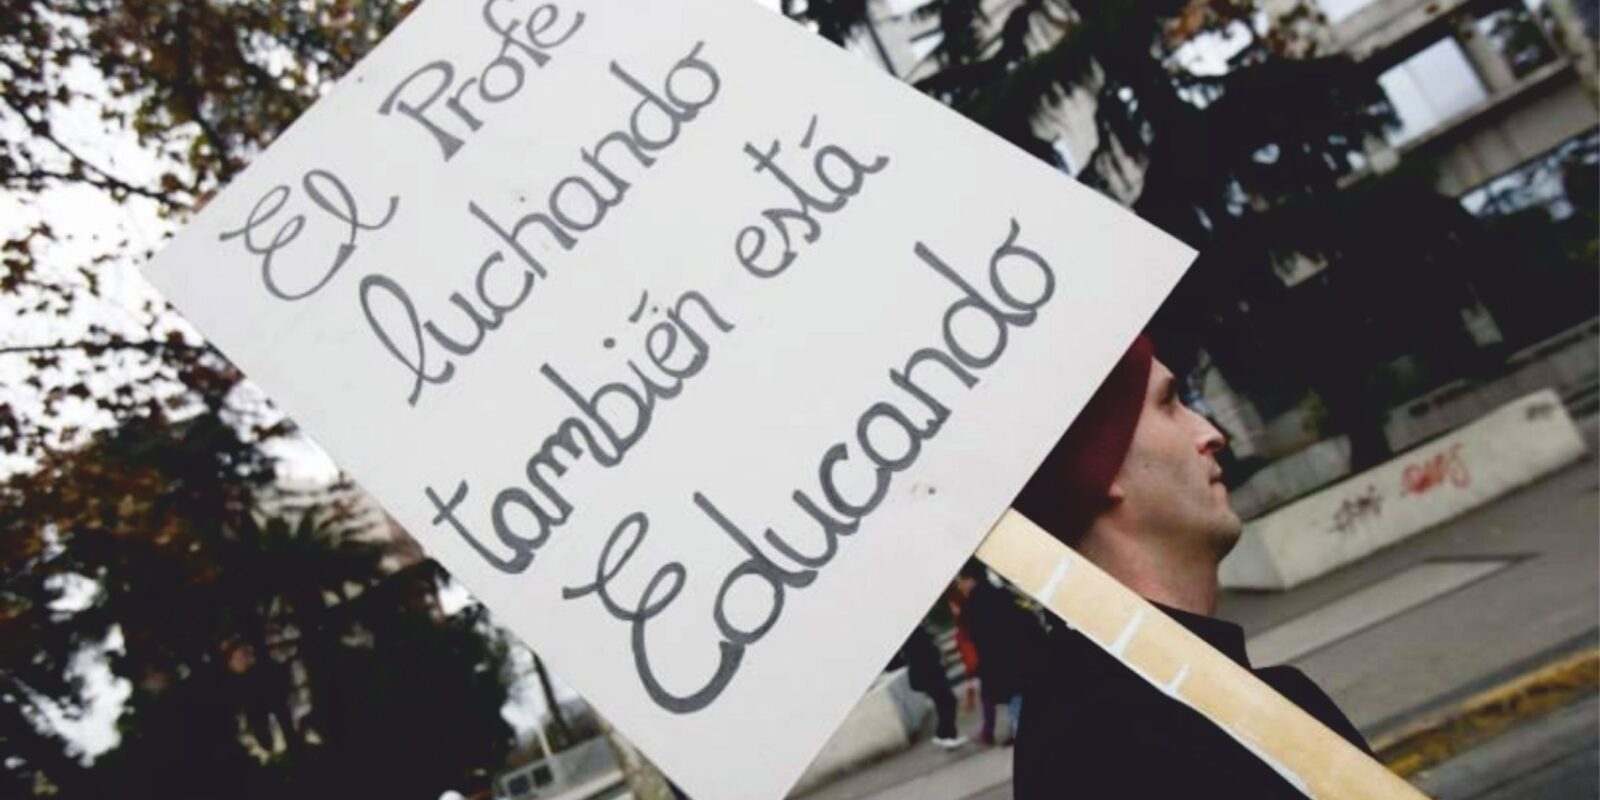 El Profe
luchando
también está
Educando